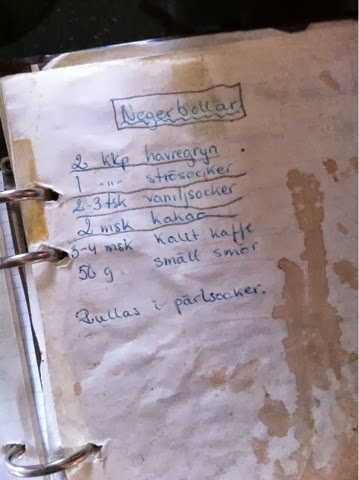 Negerbollar
2 kkp havregryn
1 -"- strösocker
2-3 tsk vaniljsocker
2 msk kakao
3-4 msk kallt kaffe
50 g. smält smör
Rullas i pärlsocker.